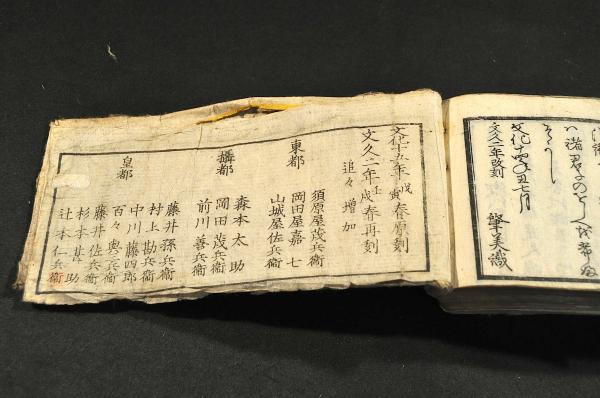 文化十四年丑七月
文久二年改刻
文化十五年戊寅春原刻
文久二年壬戌春再刻
追々増加
東都
須原屋茂兵衛
岡田屋嘉七
山城屋佐兵衛
攝都
森本太助
岡田茂兵衛
前川善兵衛
皇都
藤井孫兵衛
村上勘兵衛
中川藤四郎
百々兵衛
藤井佐兵衛
杉本甚助
辻本仁兵衛